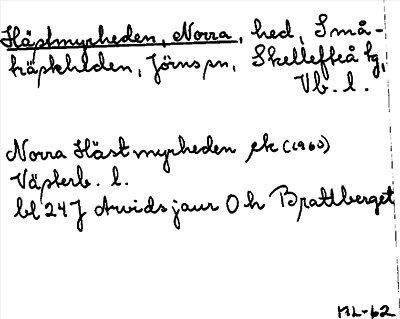 Hästmyrheden, Norra, hed, Små-
träskheden, Jörns sn, Skellefteå tg,
Vb. l.
Norra Hästmyrheden ek (1960)
Västerb. l.
bl 24 J Arvidsjaur 0 h Brattberget
BL-62